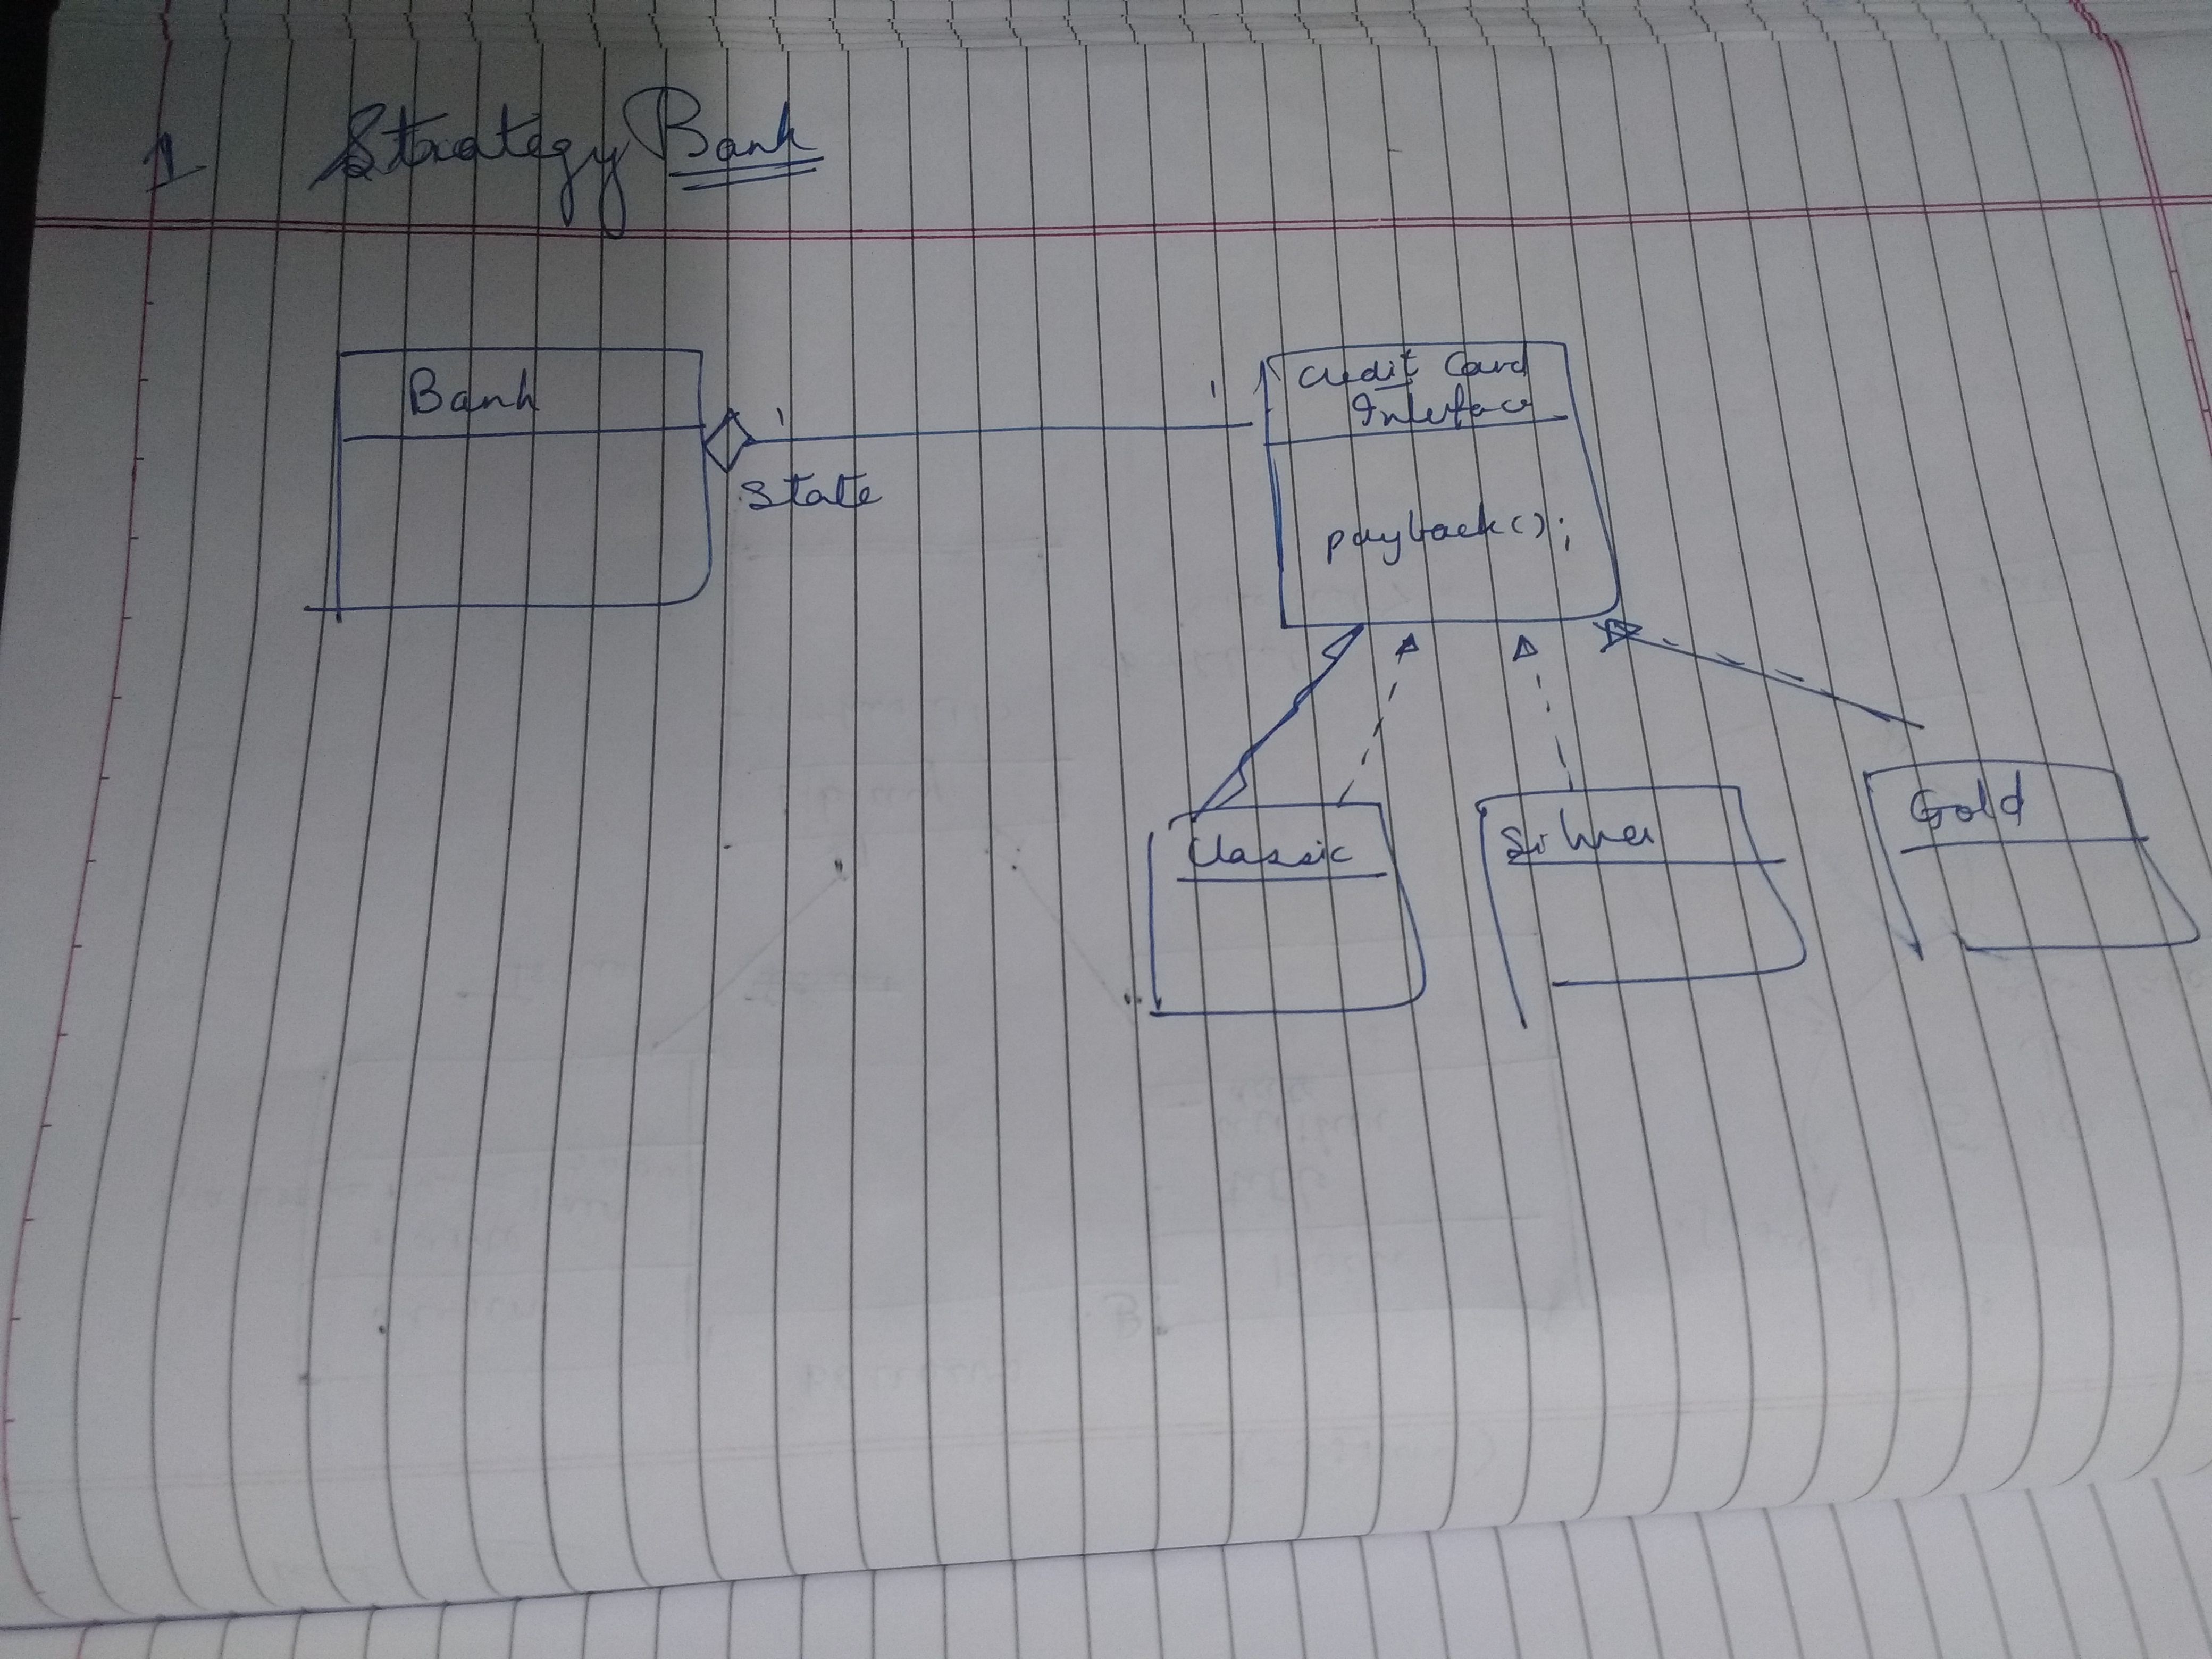 1 Strategy Bank
Bank
1
1
State
Credit Card
Interface
payback();
Classic
Silver
Gold